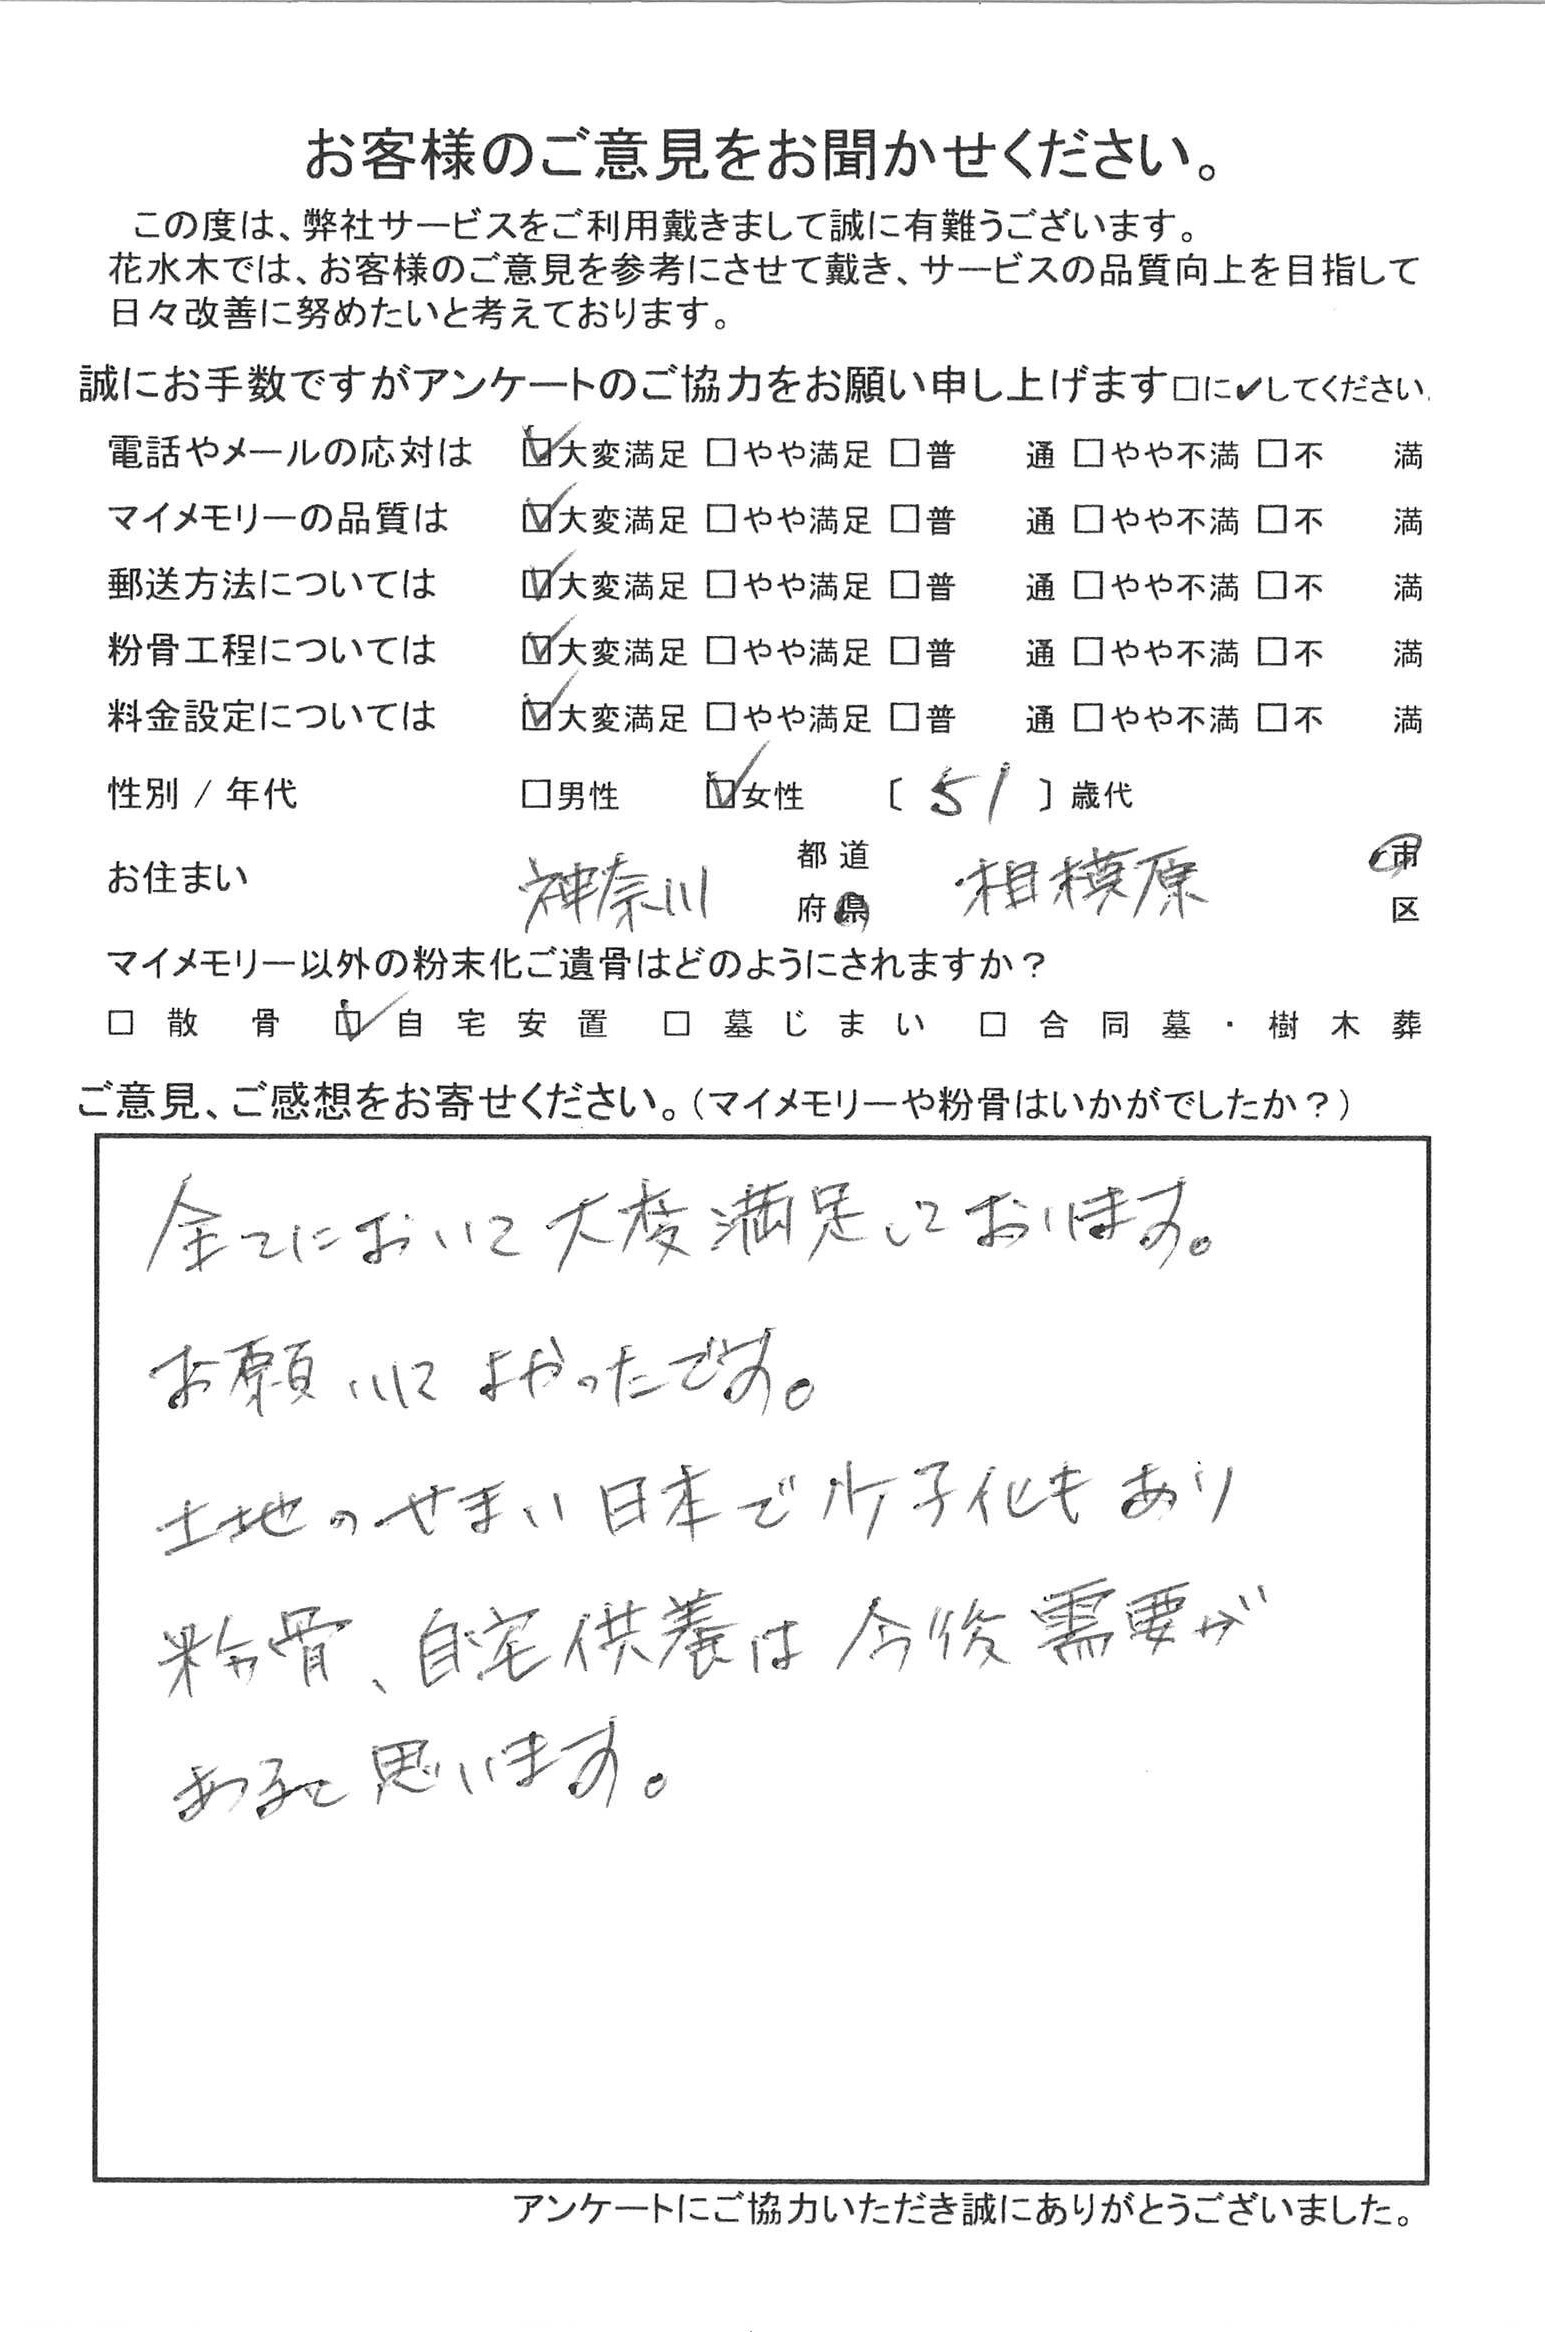 お客様のご意見をお聞かせください。
この度は、弊社サービスをご利用戴きまして誠に有難うございます。
花水木では、お客様のご意見を参考にさせて戴き、サービスの品質向上を目指して
日々改善に努めたいと考えております。
誠にお手数ですがアンケートのご協力をお願い申し上げます□に✔してください.
電話やメールの応対は ☑大変満足 □やや満足 □普 通 □やや不満 □不 満
マイメモリーの品質は ☑大変満足 □やや満足 □普 通 □やや不満 □不 満
郵送方法については ☑大変満足 □やや満足 □普 通 □やや不満 □不 満
粉骨工程については ☑大変満足 □やや満足 □普 通 □やや不満 □不 満
料金設定については ☑大変満足 □やや満足 □普 通 □やや不満 □不 満
性別 / 年代 □男性 ☑女性 〔 51 〕歳代
お住まい 神奈川 都道府県 相模原 市区
マイメモリー以外の粉末化ご遺骨はどのようにされますか？
□ 散骨 ☑ 自宅安置 □ 墓じまい □ 合同墓・樹木葬
ご意見、ご感想をお寄せください。（マイメモリーや粉骨はいかがでしたか？）
全てにおいて大変満足しております。
お願いしてよかったです。
土地のせまい日本で少子化もあり
粉骨、自宅供養は今後需要が
あると思います。
アンケートにご協力いただき誠にありがとうございました。